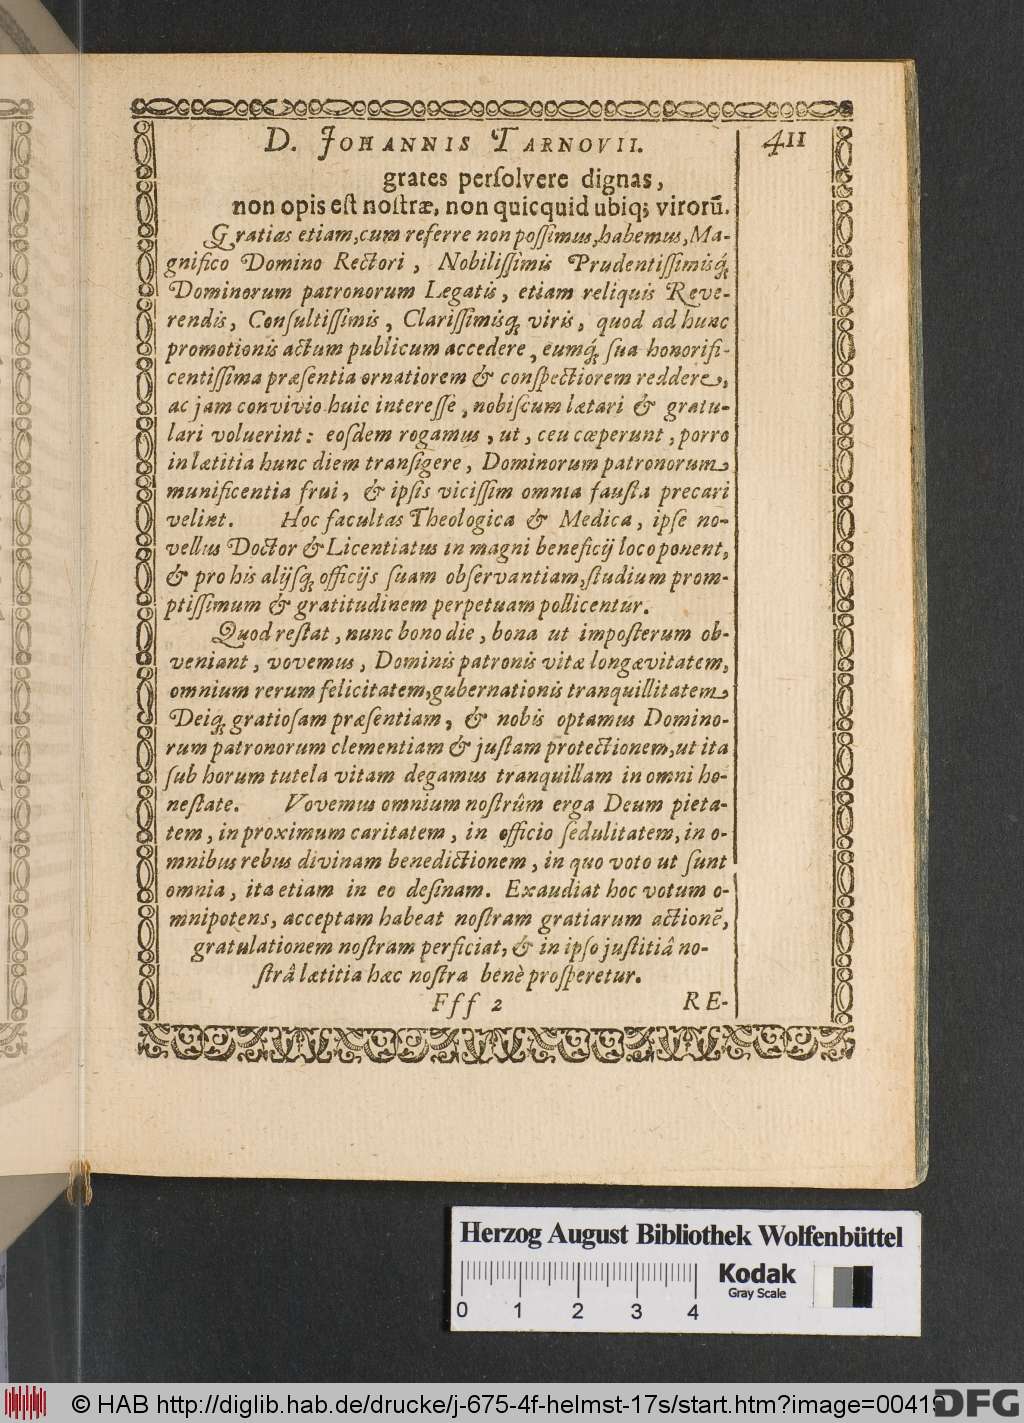 D. JOHANNIS TARNOVII. 411
grates persolvere dignas,
non opis est nostræ, non quicquid ubiq; virorũ.
Gratias etiam, cum referre non possimus, habemus, Ma-
gnifico Domino Rectori, Nobilissimis Prudentissimisq́;
Dominorum patronorum Legatis, etiam reliquis Reve-
rendis, Consultissimis, Clarissimisq; viris, quod ad hunc
promotionis actum publicum accedere, eumq́; sua honorifi-
centissima præsentia ornatiorem & conspectiorem reddere,
ac jam convivio huic interesse, nobiscum lætari & gratu-
lari voluerint: eosdem rogamus, ut, ceu cœperunt, porro
in lætitia hunc diem transigere, Dominorum patronorum
munificentia frui, & ipsis vicissim omnia fausta precari
velint. Hoc facultas Theologica & Medica, ipse no-
vellus Doctor & Licentiatus in magni beneficij loco ponent,
& pro his alijsq; officijs suam observantiam, studium prom-
ptissimum & gratitudinem perpetuam pollicentur.
Quod restat, nunc bono die, bona ut imposterum ob-
veniant, vovemus, Dominis patronis vitæ longævitatem,
omnium rerum felicitatem, gubernationis tranquillitatem
Deiq; gratiosam præsentiam, & nobis optamus Domino-
rum patronorum clementiam & justam protectionem, ut ita
sub horum tutela vitam degamus tranquillam in omni ho-
nestate. Vovemus omnium nostrûm erga Deum pieta-
tem, in proximum caritatem, in officio sedulitatem, in o-
mnibus rebus divinam benedictionem, in quo voto ut sunt
omnia, ita etiam in eo desinam. Exaudiat hoc votum o-
mnipotens, acceptam habeat nostram gratiarum actionẽ,
gratulationem nostram perficiat, & in ipso justitiâ no-
strâ lætitia hæc nostra benè prosperetur.
Fff 2 RE-
Herzog August Bibliothek Wolfenbüttel
Kodak
Gray Scale
0 1 2 3 4
© HAB http://diglib.hab.de/drucke/j-675-4f-helmst-17s/start.htm?image=00419
DFG